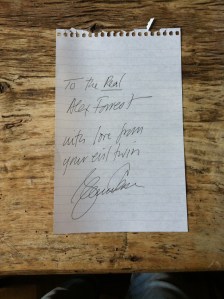 To the Real
Alex Forrest
with love from
your evil twin